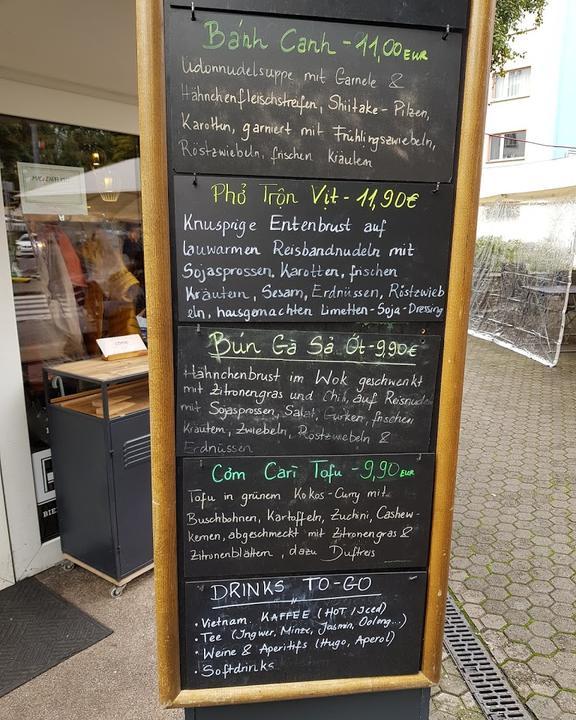 Bánh Canh - 11,00 EUR
Udonnudelsuppe mit Garnele &
Hähnchenfleischstreifen, Shiitake-Pilzen,
Karotten, garniert mit Frühlingszwiebeln,
Röstzwiebeln, frischen Kräutern
Phở Trộn Vịt - 11,90€
Knusprige Entenbrust auf
lauwarmen Reisbandnudeln mit
Sojasprossen, Karotten, frischen
Kräutern, Sesam, Erdnüssen, Röstzwieb
eln, hausgemachten Limetten-Soja-Dressing
Bún Gà Sả Ớt - 9,90€
Hähnchenbrust im Wok geschwenkt
mit Zitronengras und Chili, auf Reisnudeln
mit Sojasprossen, Salat, Gurken, frischen
Kräutern, Zwiebeln, Röstzwiebeln &
Erdnüssen
Cơm Cari Tofu - 9,90 EUR
Tofu in grünem Kokos-Curry mit
Buschbohnen, Kartoffeln, Zuchini, Cashew-
kernen, abgeschmeckt mit Zitronengras &
Zitronenblättern, dazu Duftreis
DRINKS TO-GO
• Vietnam. KAFFEE (HOT / Iced)
• Tee (Ingwer, Minze, Jasmin, Oolong...)
• Weine & Aperitifs (Hugo, Aperol)
• Softdrinks